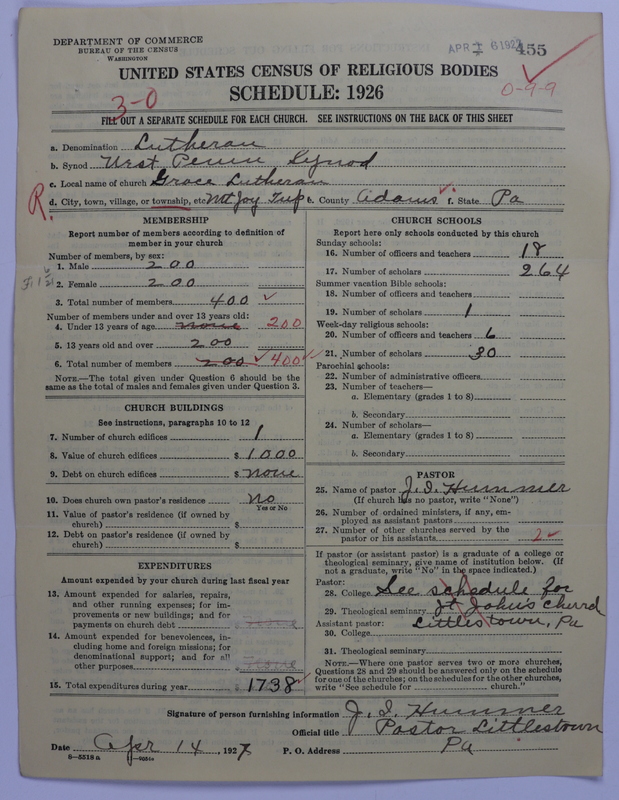 DEPARTMENT OF COMMERCE
BUREAU OF THE CENSUS
WASHINGTON
APR 16 1927
455
UNITED STATES CENSUS OF RELIGIOUS BODIES
SCHEDULE: 1926
3-0
0-9-9
FILL OUT A SEPARATE SCHEDULE FOR EACH CHURCH. SEE INSTRUCTIONS ON THE BACK OF THIS SHEET
a. Denomination Lutheran
b. Synod West Penn Synod
c. Local name of church Grace Lutheran
R. d. City, town, village, or township, etc Mt Joy Twp e. County Adams f. State Pa
MEMBERSHIP
Report number of members according to definition of member in your church
Number of members, by sex:
1. Male 200
2. Female 200
3. Total number of members 400
Number of members under and over 13 years old:
4. Under 13 years of age none 200
5. 13 years old and over 200
6. Total number of members 200 400
NOTE.—The total given under Question 6 should be the same as the total of males and females given under Question 3.
CHURCH BUILDINGS
See instructions, paragraphs 10 to 12
7. Number of church edifices 1
8. Value of church edifices $ 1000
9. Debt on church edifices $ none
10. Does church own pastor's residence No
Yes or No
11. Value of pastor's residence (if owned by church) $
12. Debt on pastor's residence (if owned by church) $
EXPENDITURES
Amount expended by your church during last fiscal year
13. Amount expended for salaries, repairs, and other running expenses; for improvements or new buildings; and for payments on church debt none
14. Amount expended for benevolences, including home and foreign missions; for denominational support; and for all other purposes none
15. Total expenditures during year 1738
CHURCH SCHOOLS
Report here only schools conducted by this church
Sunday schools:
16. Number of officers and teachers 18
17. Number of scholars 264
Summer vacation Bible schools:
18. Number of officers and teachers
19. Number of scholars 1
Week-day religious schools:
20. Number of officers and teachers 6
21. Number of scholars 30
Parochial schools:
22. Number of administrative officers
23. Number of teachers—
a. Elementary (grades 1 to 8)
b. Secondary
24. Number of scholars—
a. Elementary (grades 1 to 8)
b. Secondary
PASTOR
25. Name of pastor J. I. Hummer
(If church has no pastor, write "None")
26. Number of ordained ministers, if any, employed as assistant pastors
27. Number of other churches served by the pastor or his assistants 2
If pastor (or assistant pastor) is a graduate of a college or theological seminary, give name of institution below. (If not a graduate, write "No" in the space indicated.)
Pastor:
28. College See schedule for
29. Theological seminary St John's church
Assistant pastor: Littlestown, Pa
30. College
31. Theological seminary
NOTE.—Where one pastor serves two or more churches, Questions 28 and 29 should be answered only on the schedule for one of the churches; on the schedules for the other churches, write "See schedule for church."
Signature of person furnishing information J. I. Hummer
Official title Pastor Littlestown
Date Apr 14, 1927 P. O. Address Pa
8—5518 a